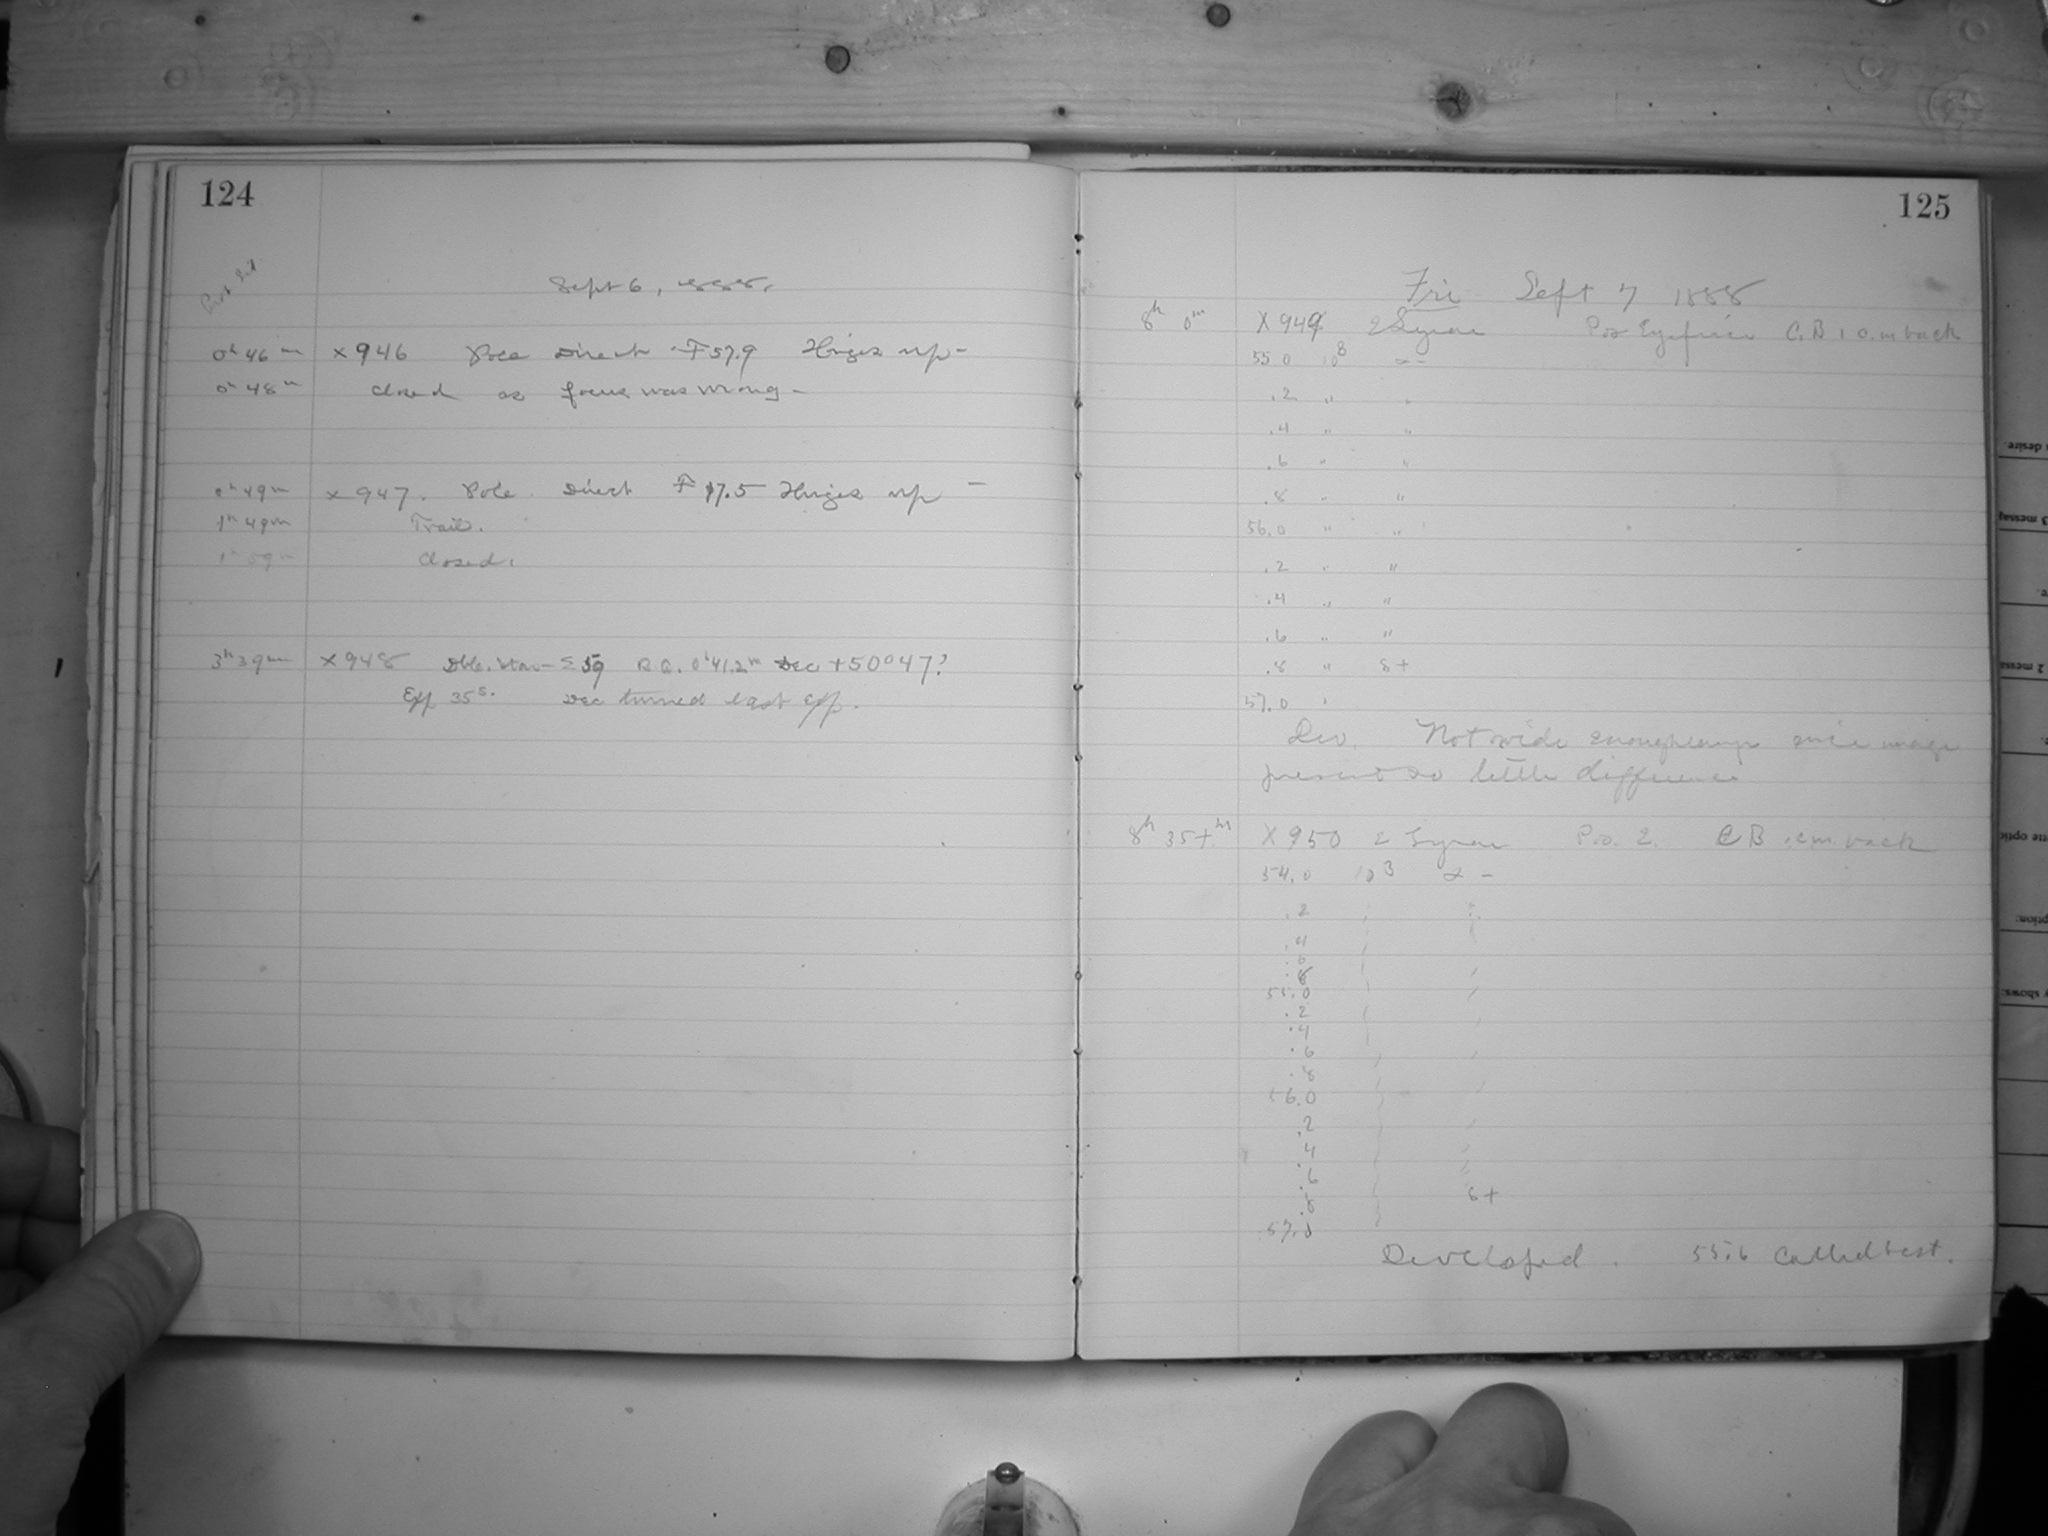 124
Sept 6, 1888.
0h 46m X946 Pole Direct F 57.9 Hinges up-
0h 48m closed as focus was wrong-
0h 49m X947. Pole. Direct F 17.5 Hinges up -
1h 49m Trail.
1h 59m Closed.
3h 39m X948 Dble. star - Σ 59 R.A. 0h 41.2m Dec +50° 47?
Exp 35s. Dec turned last exp.
125
Fri Sept 7 1888
8h 0m X949 Lyrae Pos C.B. back
55.0 10 8
.2 " "
.4 " "
.6 " "
.8 " "
56.0 " "
.2 " "
.4 " "
.6 " "
.8 " 8+
57.0 "
Dev. Not wide enough
present so little difference
8h 35+m X950 Lyrae Pos. 2. C B back
54.0 10 3
.2
.4
.6
.8
55.0
.2
.4
.6
.8
56.0
.2
.4
.6
.8 8+
57.0
Developed. 55.6 Called best.